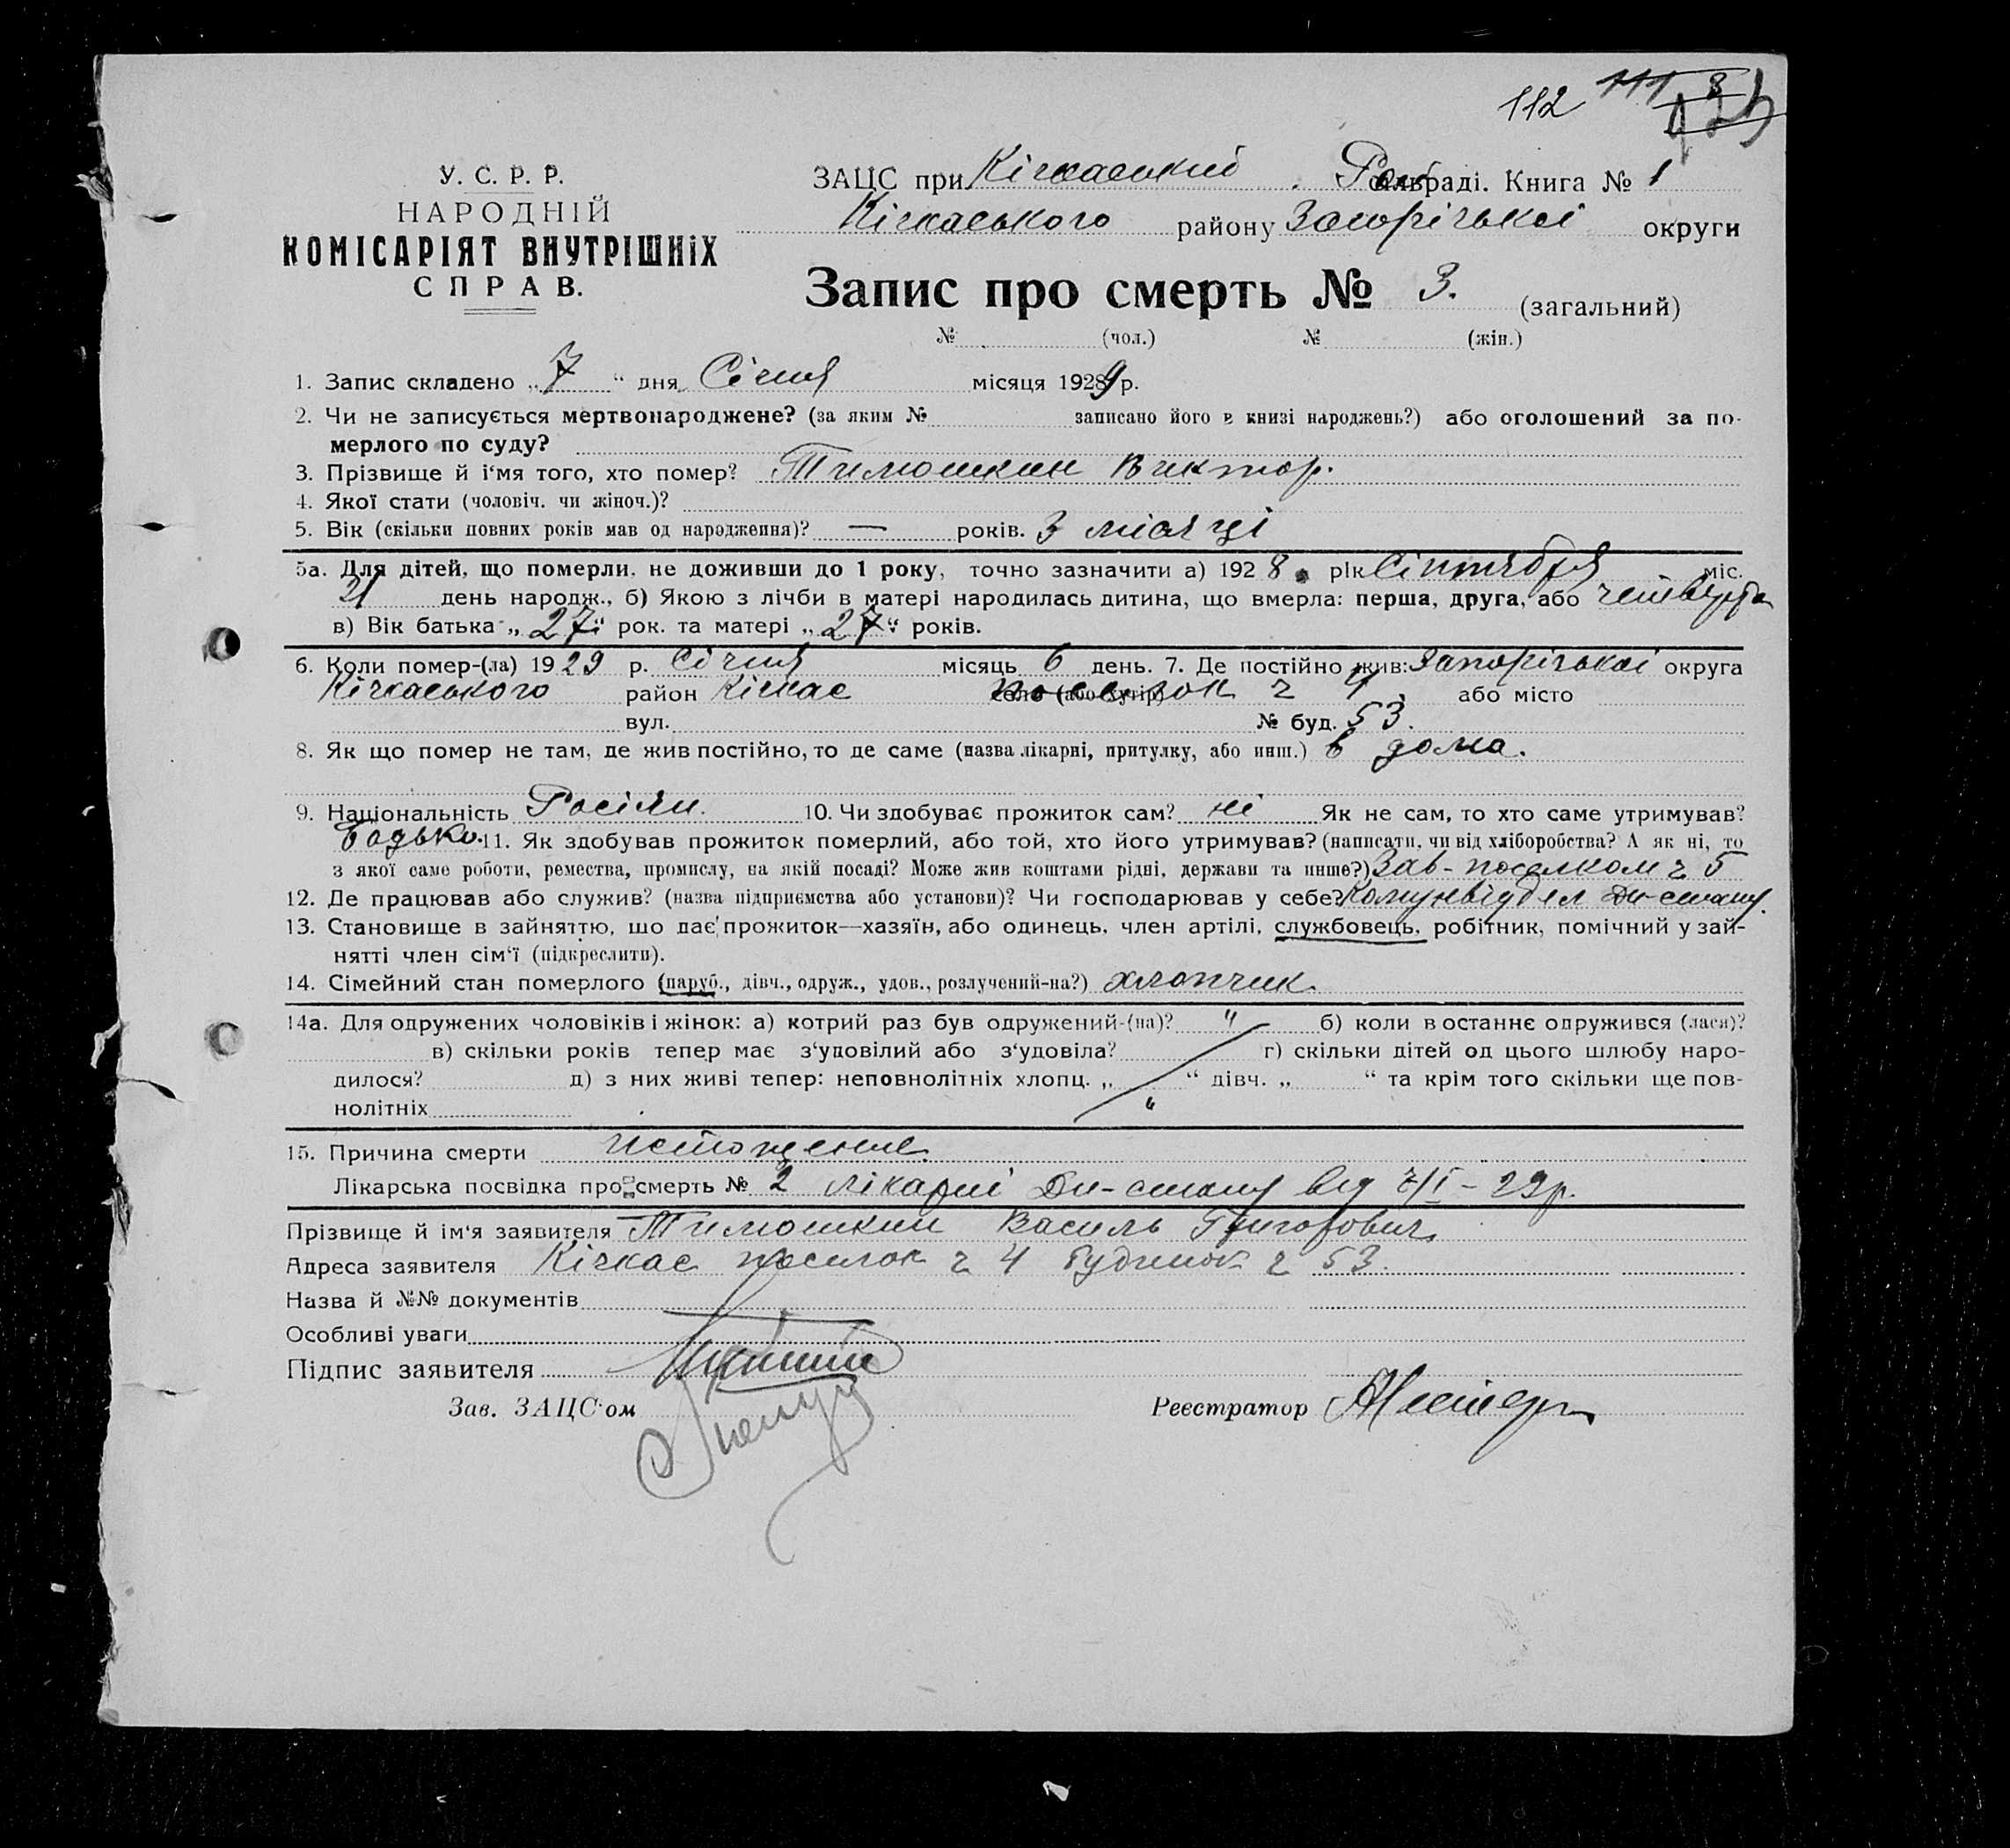 112 111
У. С. Р. Р.
НАРОДНІЙ
КОМІСАРІЯТ ВНУТРІШНІХ
СПРАВ.
ЗАЦС при Кічкаський Рай сільраді. Книга № 1
Кічкаського району Запорізької округи
Запис про смерть № 3. (загальний)
№ (чол.) № (жін.)
1. Запис складено „7“ дня Січня місяця 1929 р.
2. Чи не записується мертвонароджене? (за яким № записано його в книзі народжень?) або оголошений за по-
мерлого по суду?
3. Прізвище й і'мя того, хто помер? Тимошкин Виктор.
4. Якої стати (чоловіч. чи жіноч.)?
5. Вік (скільки повних років мав од народження)? — років. 3 місяці
5а. Для дітей, що померли, не доживши до 1 року, точно зазначити а) 1928 рік Сіптября міс.
21 день народж., б) Якою з лічби в матері народилась дитина, що вмерла: перша, друга, або четверта
в) Вік батька „27“ рок. та матері „27“ років.
6. Коли помер-(ла) 1929 р. Січня місяць 6 день. 7. Де постійно жив: Запорізької округа
Кічкаського район Кічкас село (або хутір) поселок ч 4. або місто
вул. № буд. 53.
8. Як що помер не там, де жив постійно, то де саме (назва лікарні, притулку, або инш.) в дома.
9. Національність Росіян. 10. Чи здобуває прожиток сам? ні Як не сам, то хто саме утримував?
Бадько. 11. Як здобував прожиток померлий, або той, хто його утримував? (написати, чи від хліборобства? А як ні, то
з якої саме роботи, ремества, промислу, на якій посаді? Може жив коштами рідні, держави та инше?) Зав-поселком ч 5
12. Де працював або служив? (назва підприємства або установи)? Чи господарював у себе? Комунвідділ Дн-стану.
13. Становище в зайняттю, що дає прожиток—хазяїн, або одинець, член артілі, службовець, робітник, помічний у зай-
нятті член сім'ї (підкреслити).
14. Сімейний стан померлого (паруб., дівч., одруж., удов., розлучений-на?) хлопчик.
14а. Для одружених чоловіків і жінок: а) котрий раз був одружений-(на)? " б) коли востаннє одружився (лася)?
в) скільки років тепер має з'удовілий або з'удовіла? г) скільки дітей од цього шлюбу наро-
дилося? д) з них живі тепер: неповнолітніх хлопц. „ “ дівч. „ “ та крім того скільки ще пов-
нолітніх "
15. Причина смерти истощение.
Лікарська посвідка про смерть № 2 лікарні Дн-стану від 7/I – 29р.
Прізвище й ім'я заявителя Тимошкин Василь Григорович
Адреса заявителя Кічкас поселок ч 4 будинок ч 53.
Назва й №№ документів
Особливі уваги
Підпис заявителя
Зав. ЗАЦС'ом Реєстратор